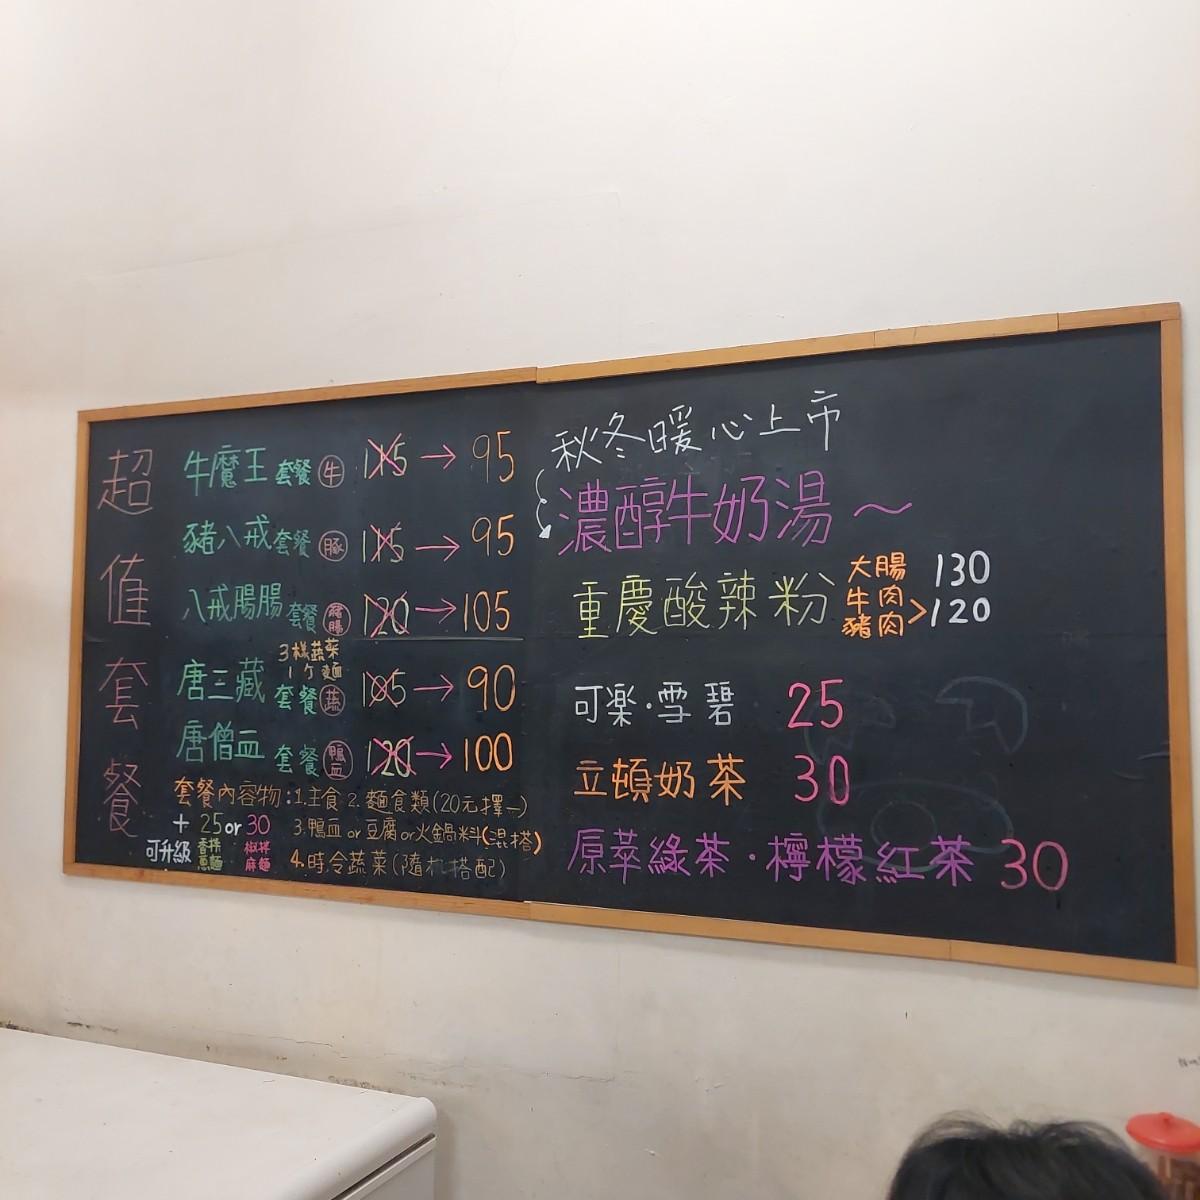 超值套餐
牛魔王套餐 牛 115 → 95
豬八戒套餐 豚 115 → 95
八戒腸腸套餐 豬腸 120 → 105
3樣蔬菜
1个麵
唐三藏套餐 蔬 105 → 90
唐僧血套餐 鴨血 120 → 100
套餐內容物:1.主食 2.麵食類(20元擇一)
3.鴨血 or 豆腐 or 火鍋料(混搭)
4.時令蔬菜(隨机搭配)
+ 25 or 30
可升級 香拌蔥麵 椒拌麻麵
秋冬暖心上市
濃醇牛奶湯~
重慶酸辣粉 大腸 130
牛肉
豬肉 > 120
可楽·雪碧 25
立頓奶茶 30
原萃綠茶·檸檬紅茶 30